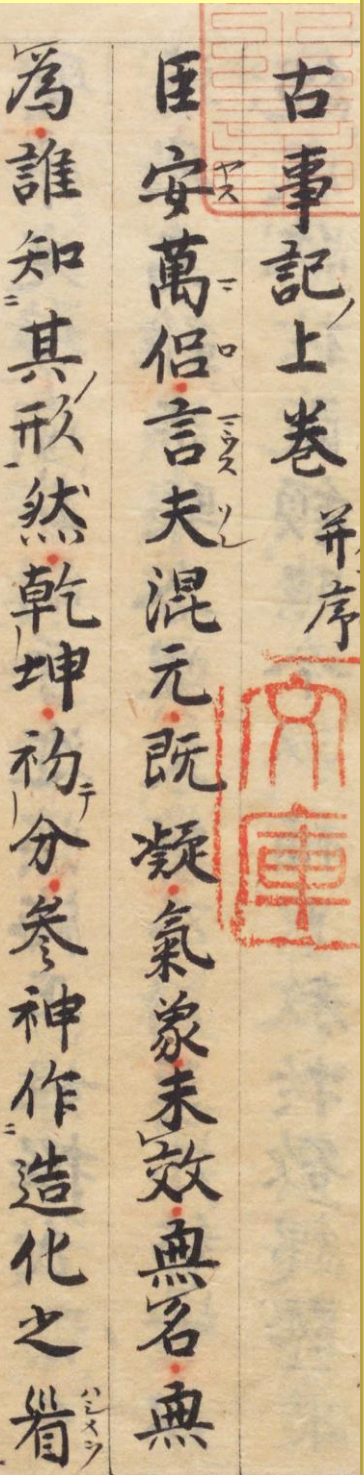 古事記上卷 并序
臣安萬侶言夫混元既凝氣象未效無名無
為誰知其形然乾坤初分叅神作造化之首
文庫